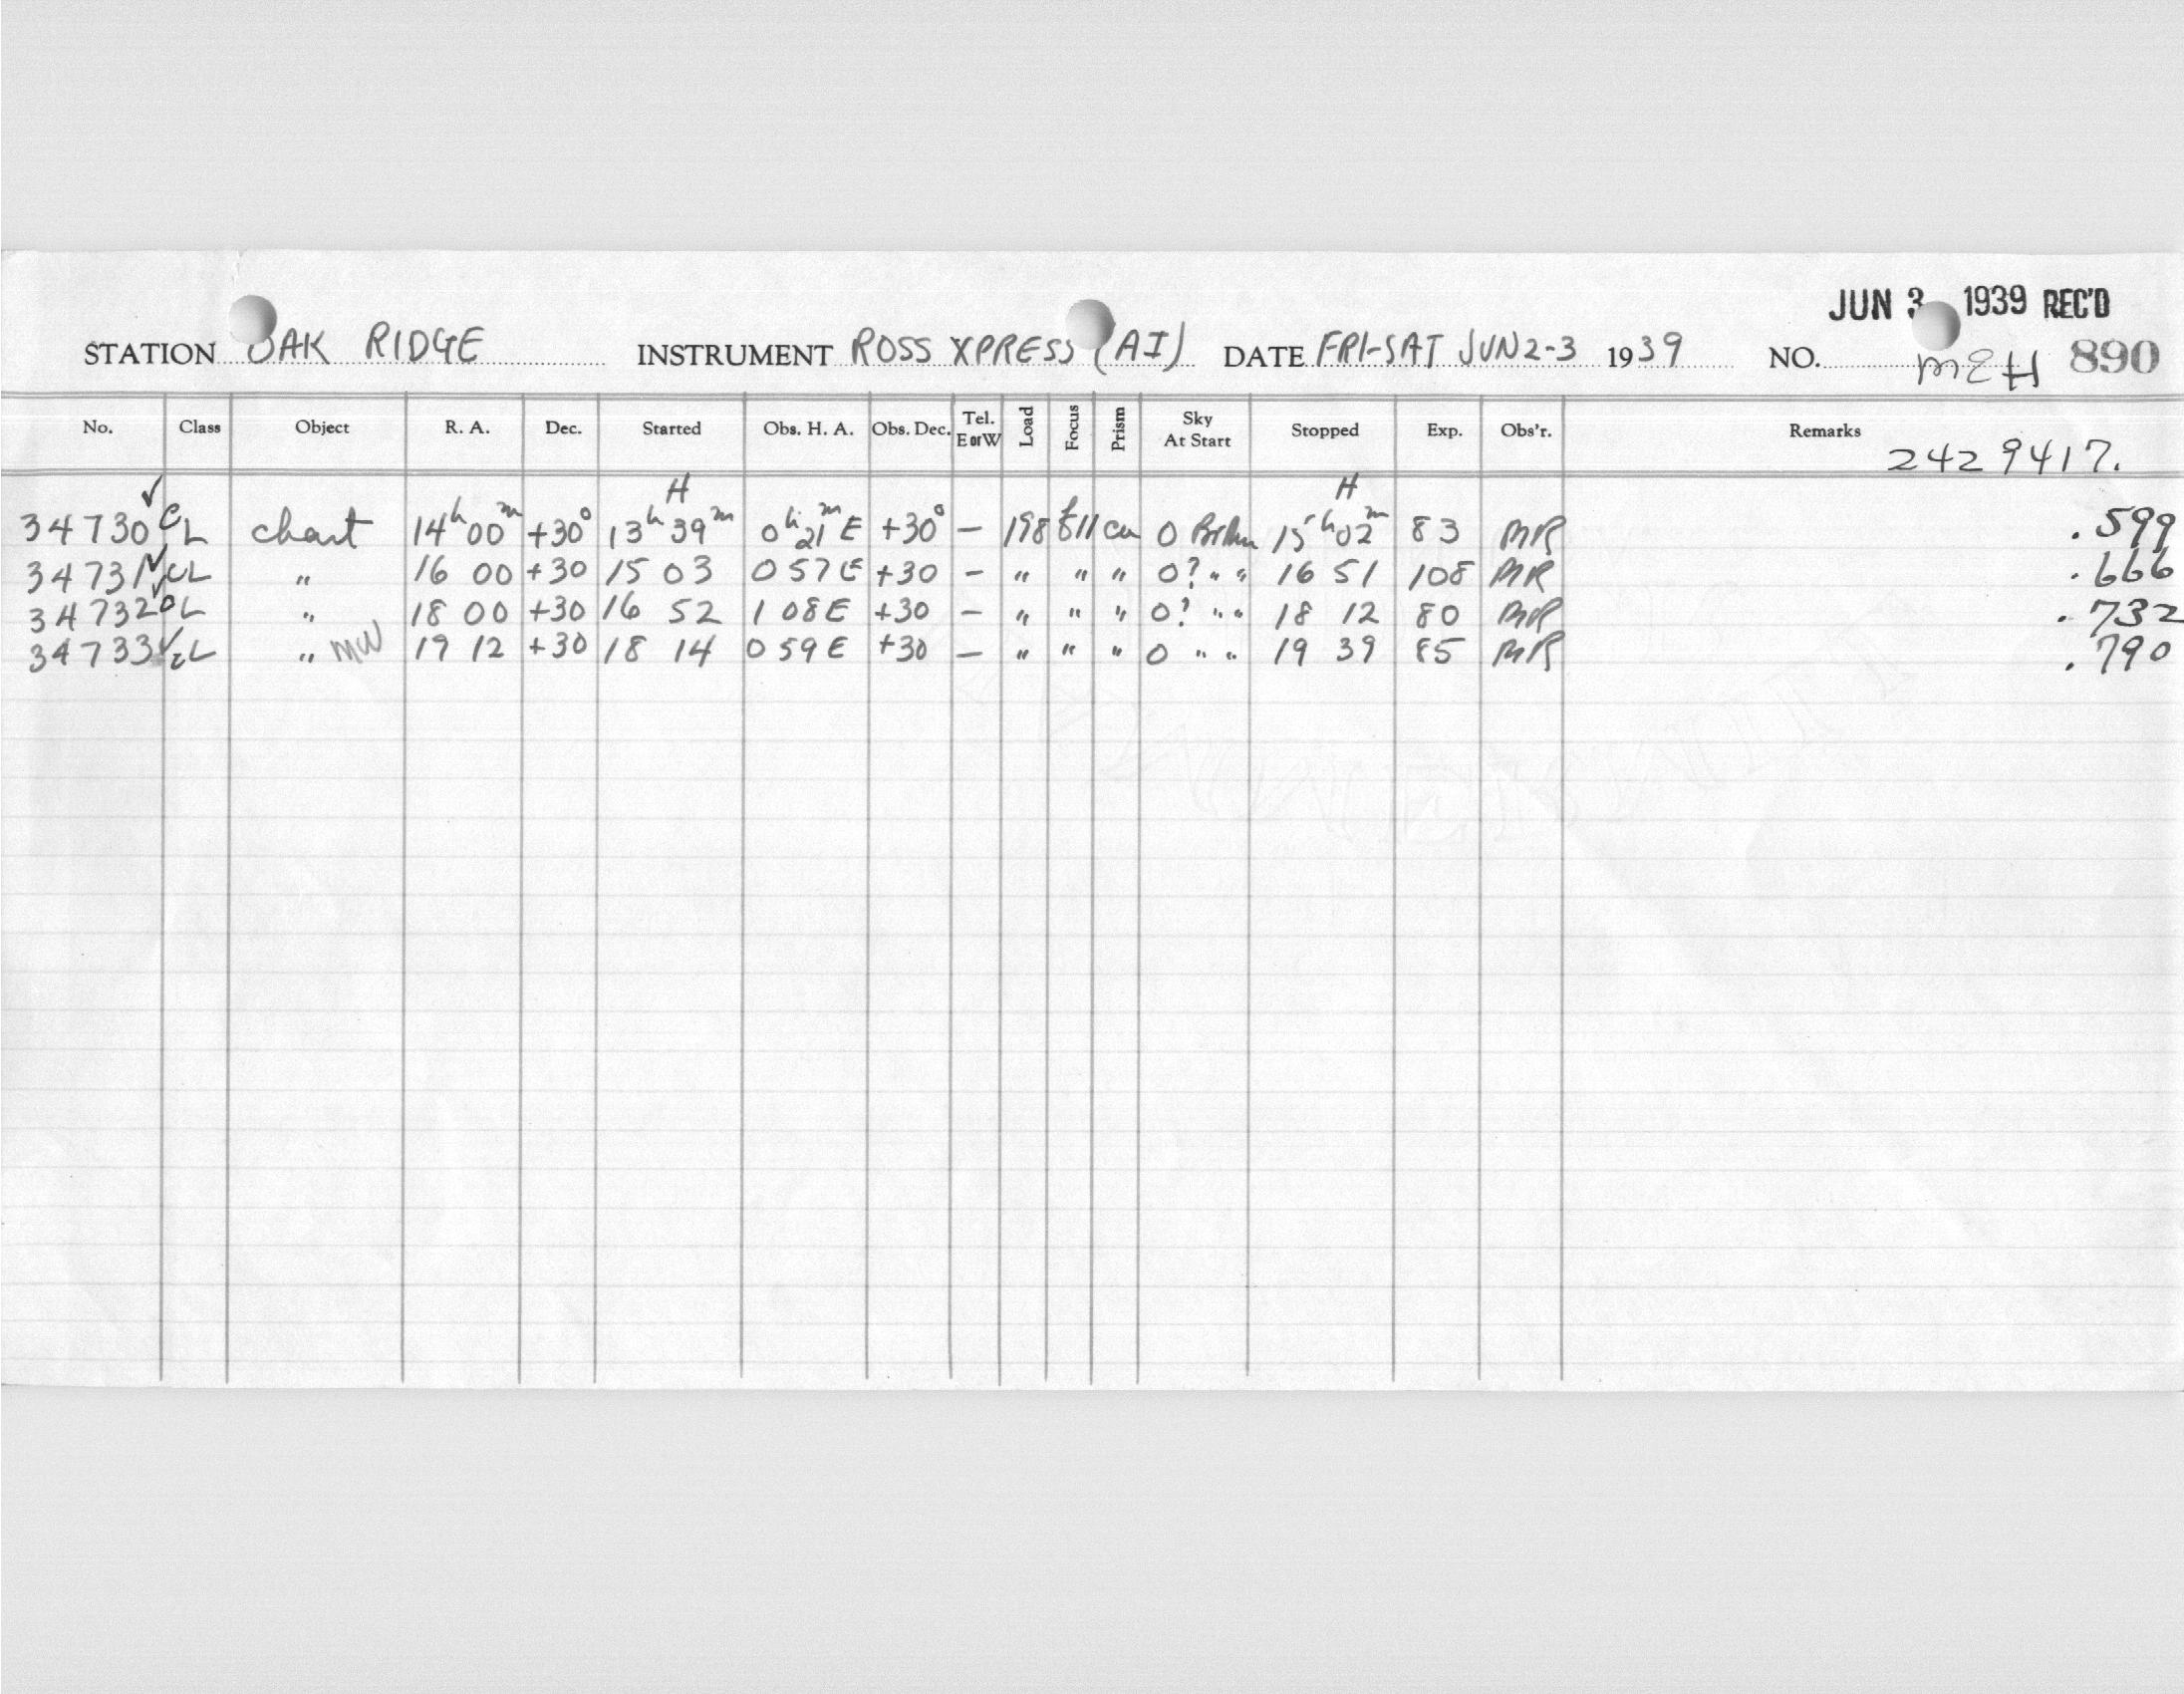 JUN 3 1939 REC'D
STATION OAK RIDGE INSTRUMENT ROSS XPRESS (AI) DATE FRI-SAT JUN 2-3 1939 NO. MEH 890
No. Class Object R. A. Dec. Started Obs. H. A. Obs. Dec. Tel. E or W Load Focus Prism Sky At Start Stopped Exp. Obs'r. Remarks
2429417.
H H
34730 ✓ CL chart 14h 00m +30° 13h 39m 0h 21m E +30° — 198 f11 0 15h 02m 83 MR .599
34731 ✓ CL " 16 00 +30 15 03 0 57 E +30 - " " " 0? " " 16 51 108 MR .666
34732 ✓ CL " 18 00 +30 16 52 1 08 E +30 - " " " 0? " " 18 12 80 MR .732
34733 ✓ CL " MW 19 12 +30 18 14 0 59 E +30 — " " " 0 " " 19 39 85 MR .790